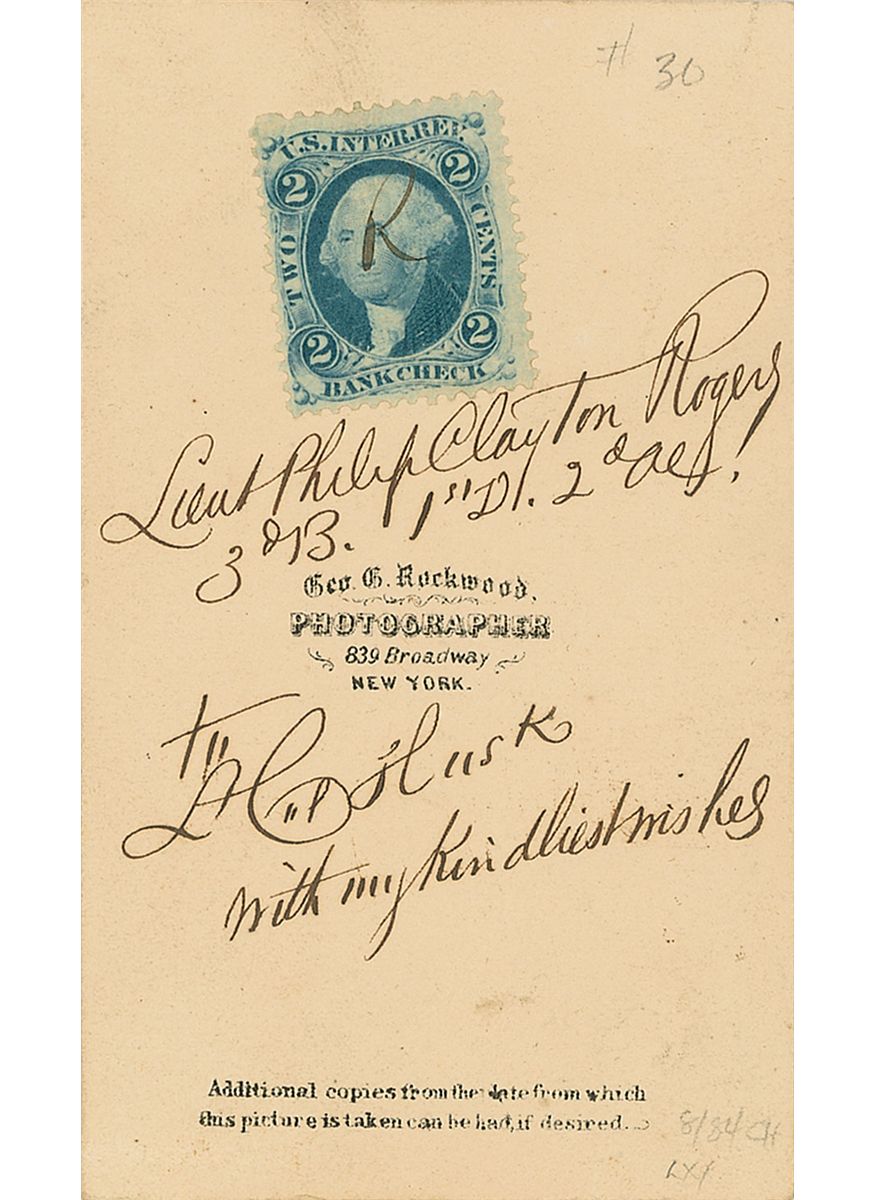 # 30
U.S. INTER. REV.
2 2
TWO CENTS
R
2 2
BANK CHECK
Lieut Philip Clayton Rogers
3d B. 1st D. 2d
Geo. G. Rockwood.
PHOTOGRAPHER
839 Broadway
NEW YORK.
To
Lt Col Husk
with my kindliest wishes
Additional copies from the date from which
this picture is taken can be had, if desired.
8/84 CH